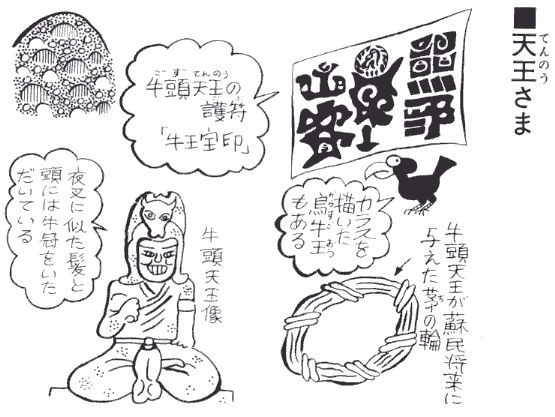 ■天王さま
てんのう
牛頭天王の
ごずてんのう
護符
「牛王宝印」
カラスを
描いた
烏牛王
からすごおう
もある
牛頭天王が蘇民将来に
与えた茅の輪
ち わ
夜叉に似た髪と
頭には牛冠をいた
だいている
牛頭天王像